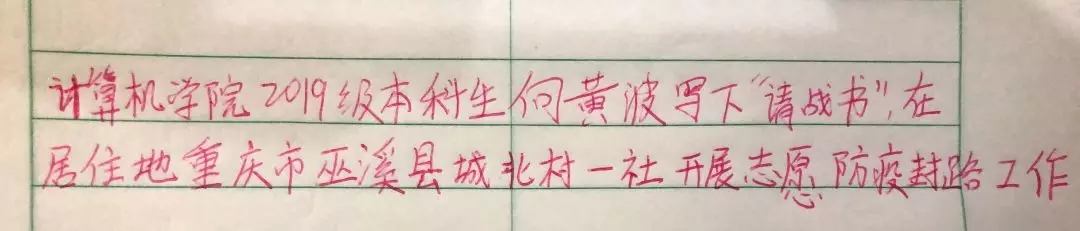 计算机学院2019级本科生何黄波写下“请战书”，在
居住地重庆市巫溪县城北村一社开展志愿防疫封路工作